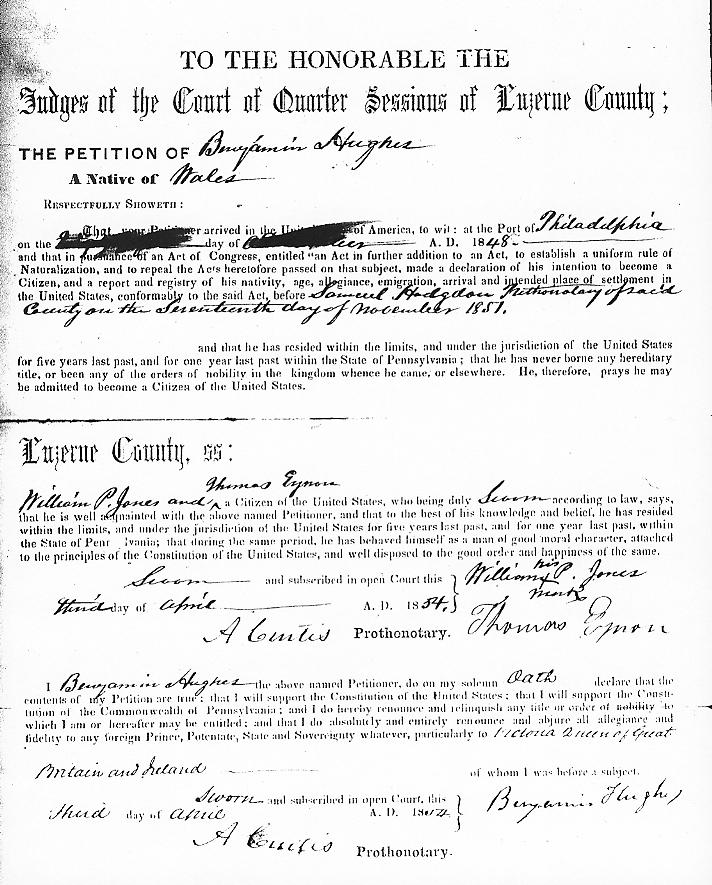 TO THE HONORABLE THE
Judges of the Court of Quarter Sessions of Luzerne County;
THE PETITION OF Benjamin Hughes
A Native of Wales
RESPECTFULLY SHOWETH:
That your Petitioner arrived in the United of America, to wit: at the Port of Philadelphia
on the day of A. D. 1848.
and that in pursuance of an Act of Congress, entitled "an Act in further addition to an Act, to establish a uniform rule of
Naturalization, and to repeal the Acts heretofore passed on that subject, made a declaration of his intention to become a
Citizen, and a report and registry of his nativity, age, allegiance, emigration, arrival and intended place of settlement in
the United States, conformably to the said Act, before Samuel Hodgdon Prothonotary of said
County on the Seventeenth day of November 1851.
and that he has resided within the limits, and under the jurisdiction of the United States
for five years last past, and for one year last past within the State of Pennsylvania; that he has never borne any hereditary
title, or been any of the orders of nobility in the kingdom whence he came, or elsewhere. He, therefore, prays he may
be admitted to become a Citizen of the United States.
Luzerne County, ss:
Thomas Eynon
William P. Jones and ^ a Citizen of the United States, who being duly Sworn according to law, says,
that he is well acquainted with the above named Petitioner, and that to the best of his knowledge and belief, he has resided
within the limits, and under the jurisdiction of the United States for five years last past, and for one year last past, within
the State of Pennsylvania; that during the same period, he has behaved himself as a man of good moral character, attached
to the principles of the Constitution of the United States, and well disposed to the good order and happiness of the same.
Sworn and subscribed in open Court this } William P. Jones
his
mark
third day of April A. D. 1854.
A Curtis Prothonotary. Thomas Eynon
I Benjamin Hughes the above named Petitioner, do on my solemn Oath declare that the
contents of my Petition are true; that I will support the Constitution of the United States; that I will support the Consti-
tution of the Commonwealth of Pennsylvania; and I do hereby renounce and relinquish any title or order of nobility to
which I am or hereafter may be entitled; and that I do absolutely and entirely renounce and abjure all allegiance and
fidelity to any foreign Prince, Potentate, State and Sovereignty whatever, particularly to Victoria Queen of Great
Britain and Ireland of whom I was before a subject.
Sworn and subscribed in open Court, this } Benjamin Hughes
third day of April A. D. 1854
A Curtis Prothonotary.